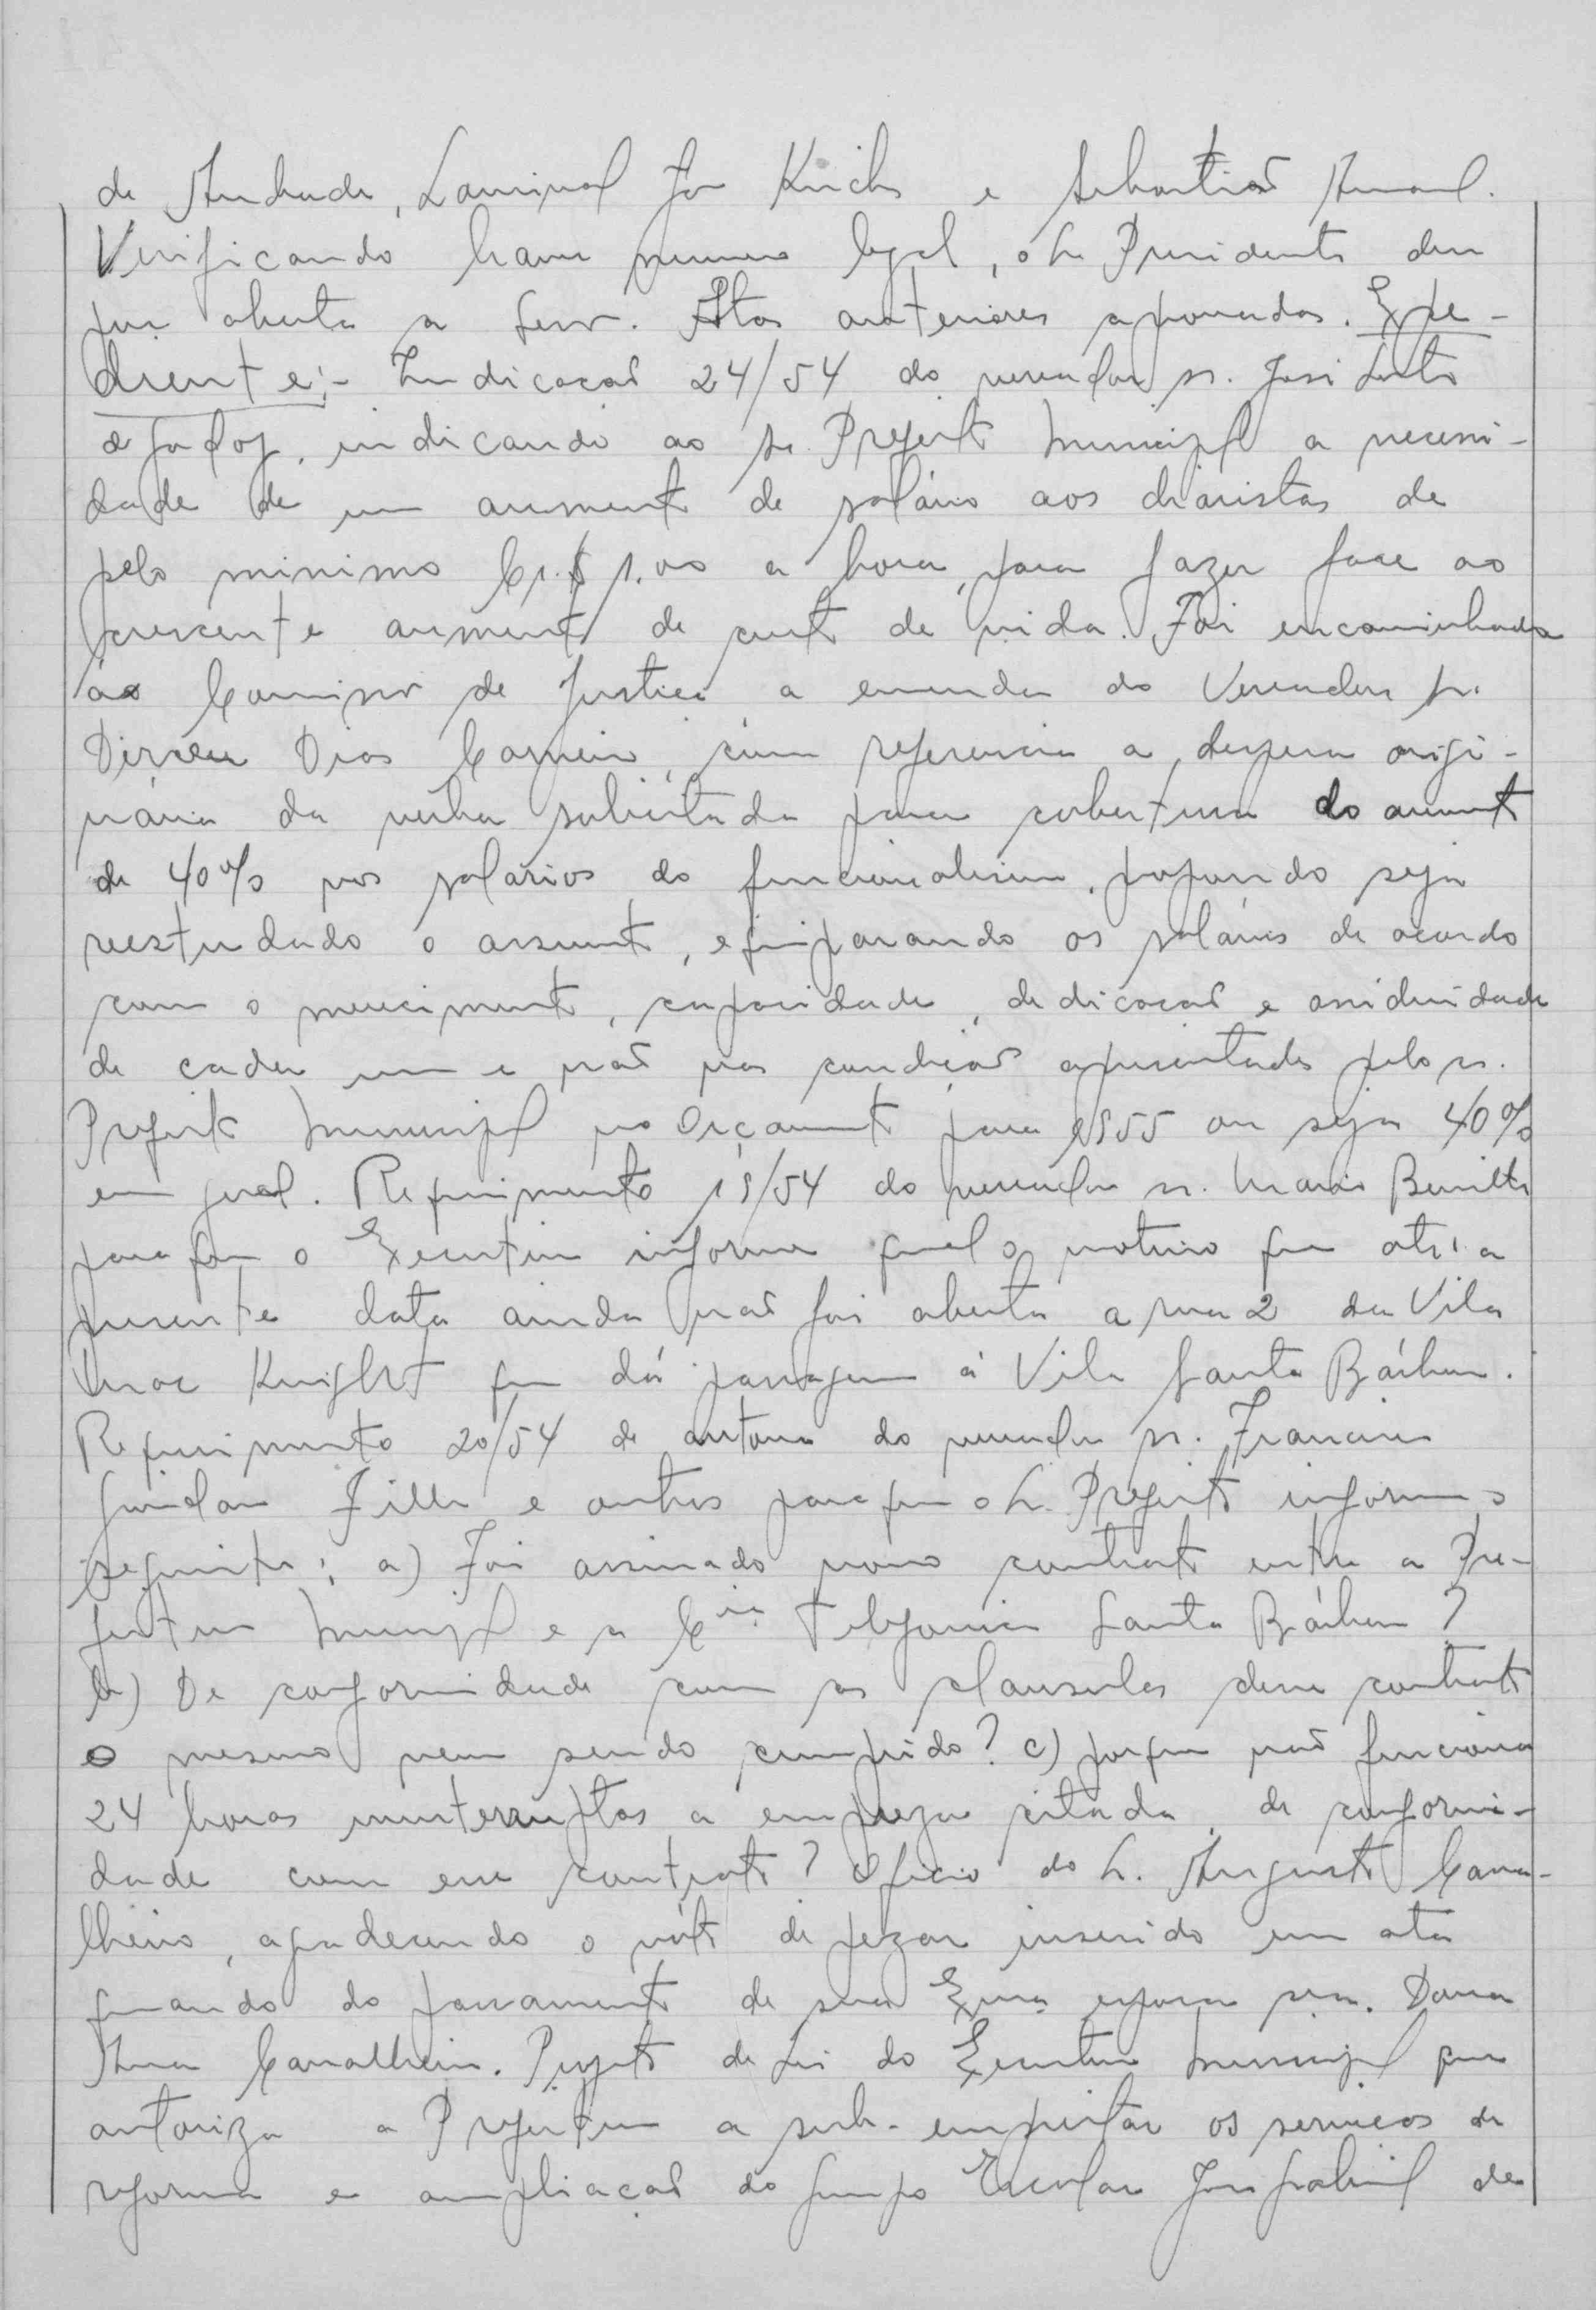 de Andrade, Lourival José Kirche e Sebastião Amaral.
Verificando haver numero legal, o Sr Presidente deu
por aberta a sessão. Atas anteriores aprovadas. Expe-
diente:- Indicação 24/54 do vereador sr. José Leite
de Godoy, indicando ao sr Prefeito Municipal a necessi-
dade de um aumento de salário aos diaristas de
pelo minimo Cr.$ 1.00 a hora, para fazer face ao
crescente aumento de custo de vida. Foi encaminhada
ás Comissão de Justiça a emenda do Vereador sr.
Dirceu Dias Carneiro, com referencia a despesa origi-
nária da verba solicitada para cobertura do aumento
de 40% nos salarios do funcionalismo, propondo seja
reestudado o assunto, equiparando os salários de acordo
com o merecimento, capacidade, dedicação e assiduidade
de cada um e não nas condições apresentadas pelo sr.
Prefeito Municipal no Orçamento para 1955 ou seja 40%
em geral. Requerimento 19/54 do vereador sr. Mario
para que o Executivo informe qual o motivo que até a
presente data ainda não foi aberta a rua 2 da Vila
Mac Knight que dá passagem á Vila Santa Bárbara.
Requerimento 20/54 de autoria do vereador sr. Francisco
Filho e outros para que o Sr. Prefeito informe o
seguinte: a) Foi assinado novo contrato entre a Pre-
feitura Municipal e a Cia Telefonica Santa Bárbara?
b) De conformidade com as clausulas desse contrato
o mesmo vem sendo cumprido? c) porque não funciona
24 horas ininterruptas a empreza citada, de conformi-
dade com esse contrato? Oficio do Sr. Augusto Cava-
lheiro, agradecendo o voto de pezar inserido em ata
quando do passamento de sua Exma esposa sra. Dona
Ana Cavalheiro. Projeto de Lei do Executivo Municipal que
autoriza a Prefeitura a sub-empreitar os serviços de
reforma e ampliação do Grupo Escolar José Gabriel de